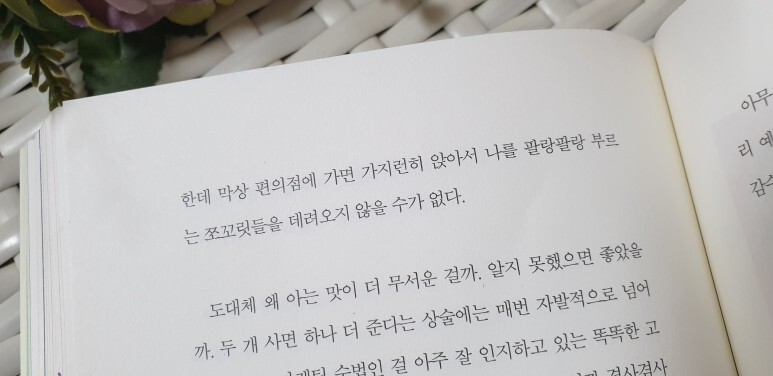 한데 막상 편의점에 가면 가지런히 앉아서 나를 팔랑팔랑 부르
는 쪼꼬릿들을 데려오지 않을 수가 없다.
도대체 왜 아는 맛이 더 무서운 걸까. 알지 못했으면 좋았을
까. 두 개 사면 하나 더 준다는 상술에는 매번 자발적으로 넘어
수법인 걸 아주 잘 인지하고 있는 똑똑한 고
겸사겸사
아무
리 예